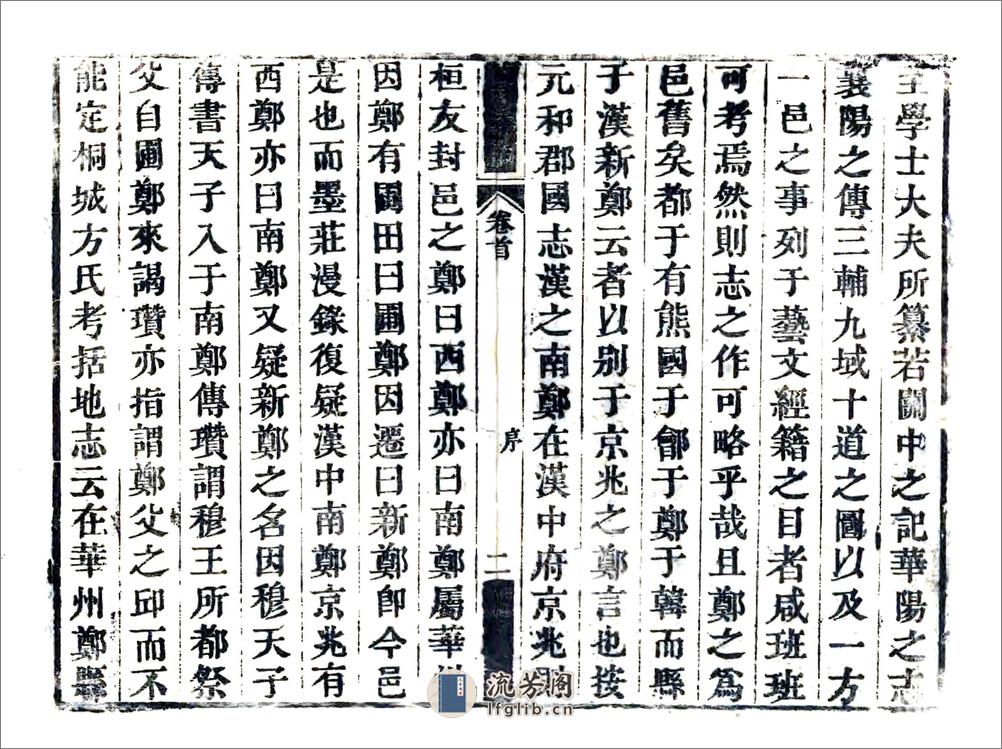 主學士大夫所纂若關中之記華陽之志
襄陽之傳三輔九域十道之圖以及一方
一邑之事列于藝文經籍之目者咸班班
可考焉然則志之作可略乎哉且鄭之為
邑舊矣都于有熊國于鄶于鄭于韓而縣
于漢新鄭云者以别于京兆之鄭言也按
元和郡國志漢之南鄭在漢中府京兆則
卷首
序
二
桓友封邑之鄭曰西鄭亦曰南鄭屬華州
因鄭有圃田曰圃鄭因遷曰新鄭卽今邑
是也而墨莊漫錄復疑漢中南鄭京兆有
西鄭亦曰南鄭又疑新鄭之名因穆天子
傳書天子入于南鄭傳瓚謂穆王所都祭
父自圃鄭來謁瓚亦指謂鄭父之邱而不
能定桐城方氏考括地志云在華州鄭縣
流芳阁
lfglib.cn